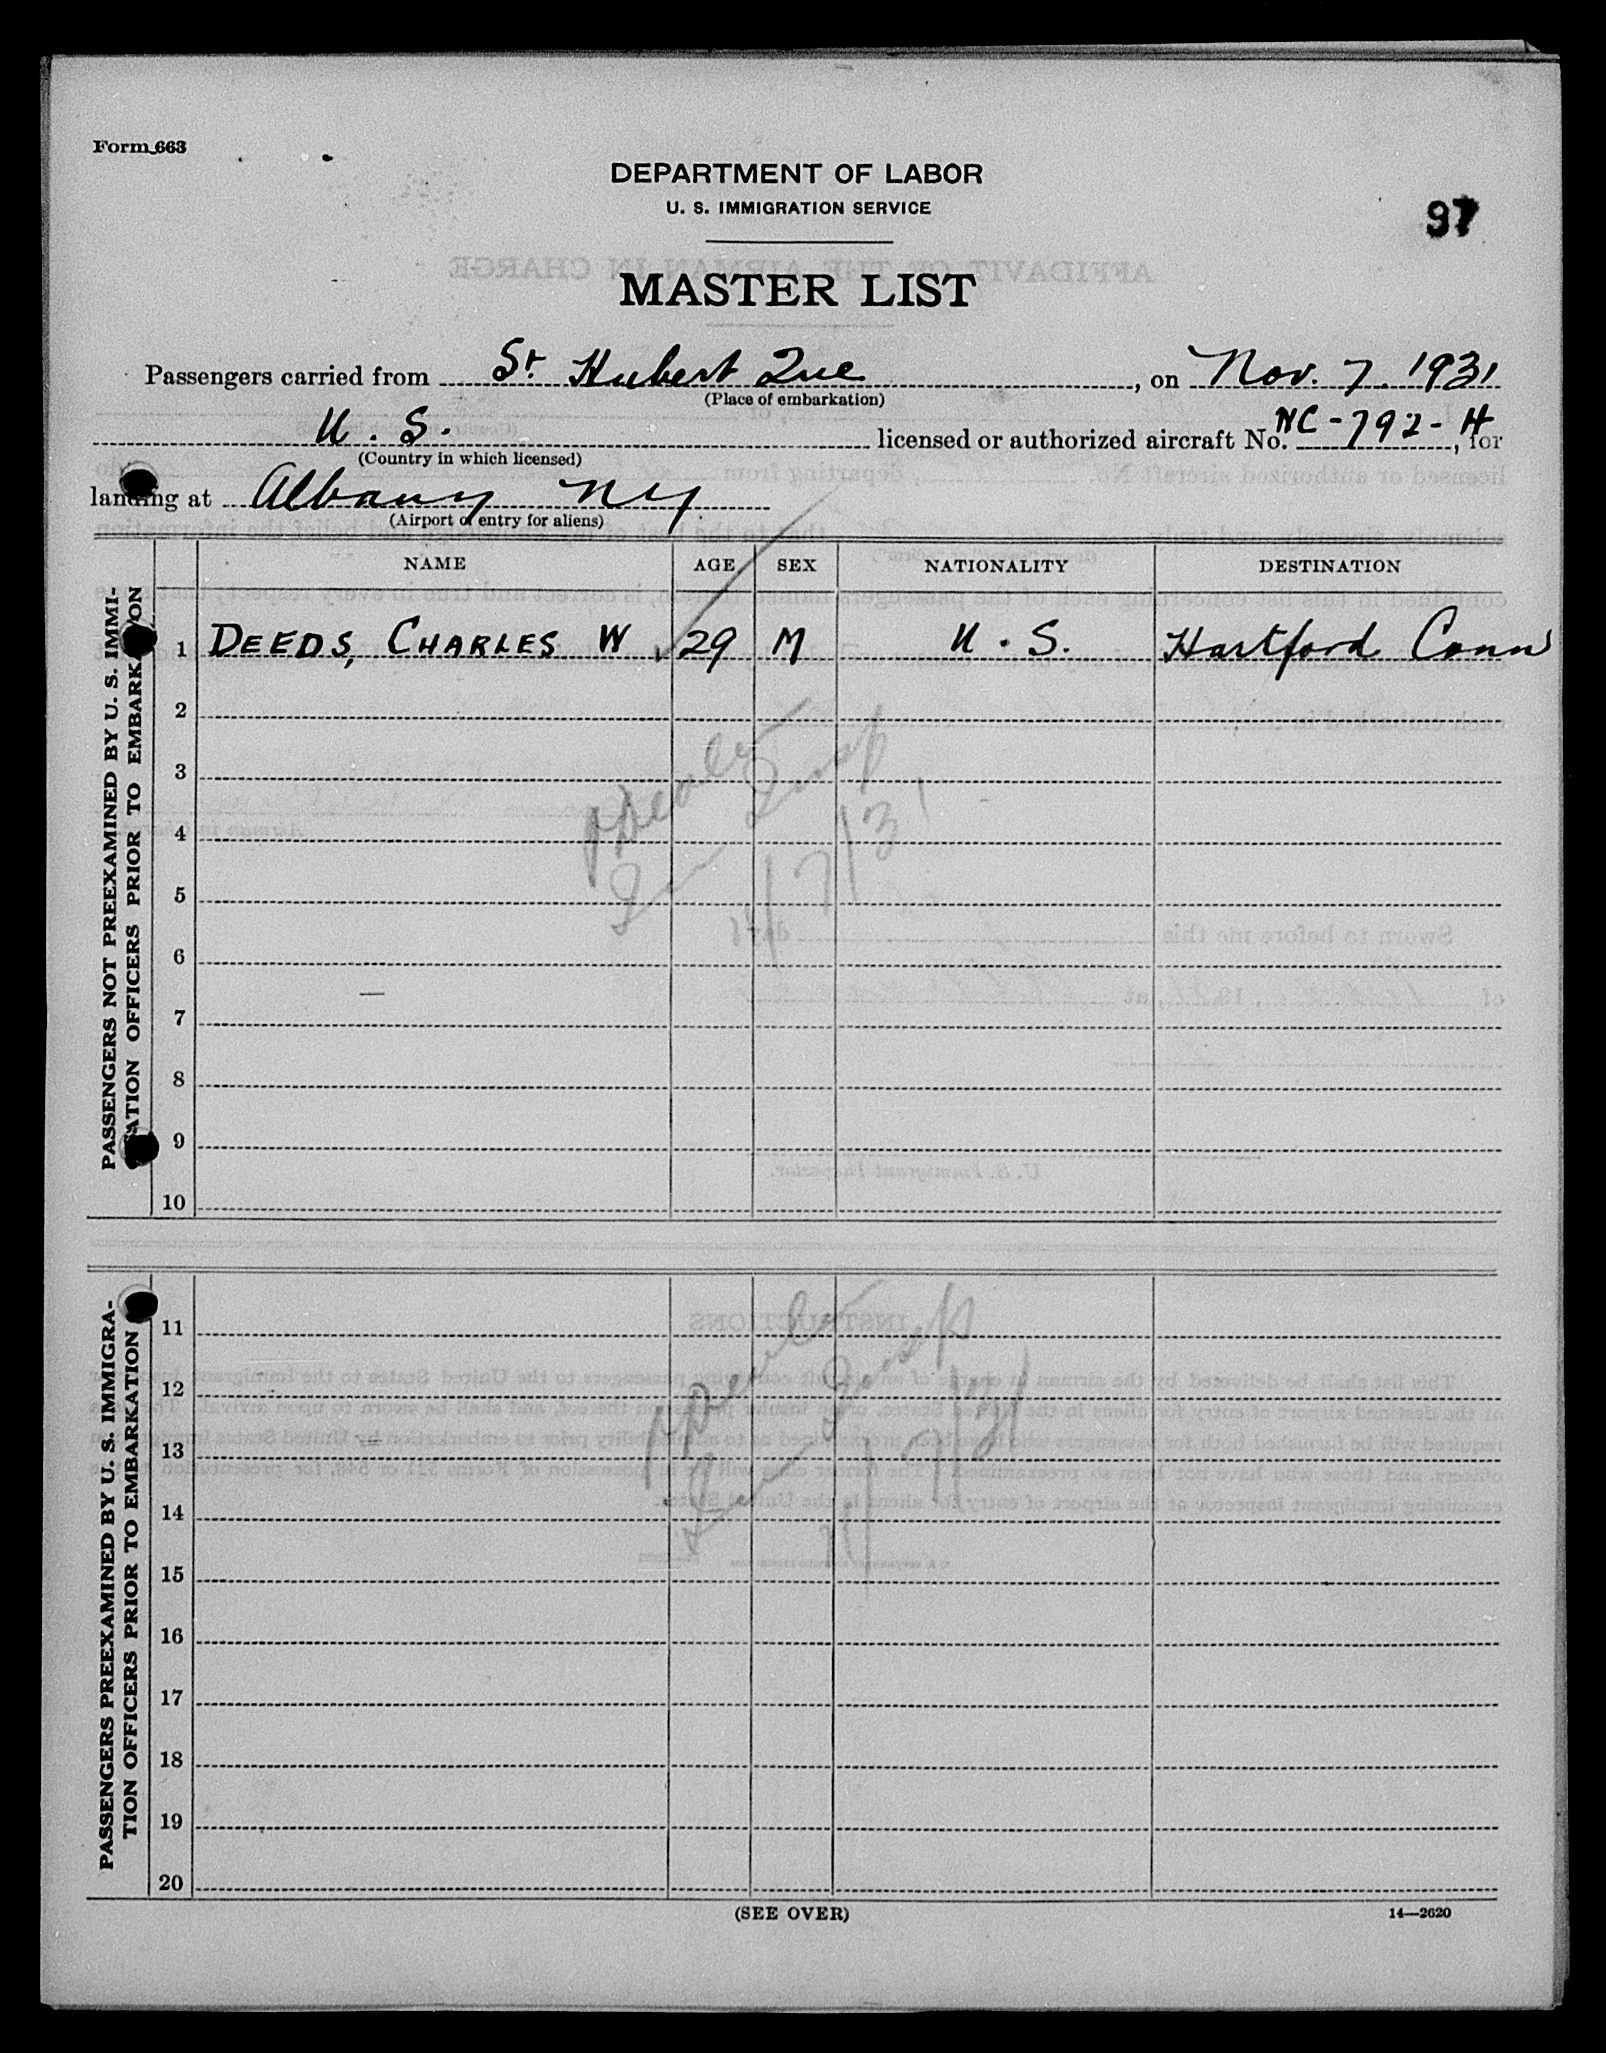 Form 663
DEPARTMENT OF LABOR
U. S. IMMIGRATION SERVICE
97
MASTER LIST
Passengers carried from St. Hubert Que, on Nov. 7. 1931
(Place of embarkation)
U. S. licensed or authorized aircraft No. NC-792-H, for
(Country in which licensed)
landing at Albany NY.
(Airport of entry for aliens)
NAME AGE SEX NATIONALITY DESTINATION
PASSENGERS NOT PREEXAMINED BY U. S. IMMI-
GRATION OFFICERS PRIOR TO EMBARKATION
1 DEEDS, CHARLES W 29 M U. S. Hartford Conn
2
3
4
5
6
7
8
9
10
Insp
11/7/31
PASSENGERS PREEXAMINED BY U. S. IMMIGRA-
TION OFFICERS PRIOR TO EMBARKATION
11
12
13
14
15
16
17
18
19
20
Insp
11/7/31
(SEE OVER)
14—2620